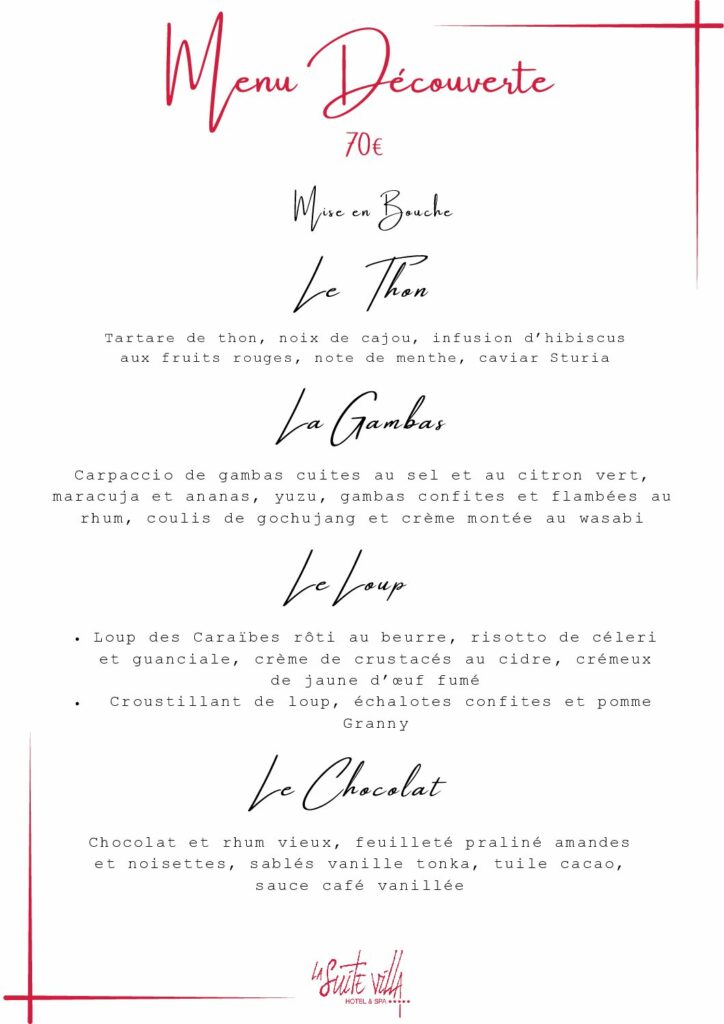 Menu Découverte
70€
Mise en Bouche
Le Thon
Tartare de thon, noix de cajou, infusion d'hibiscus
aux fruits rouges, note de menthe, caviar Sturia
La Gambas
Carpaccio de gambas cuites au sel et au citron vert,
maracuja et ananas, yuzu, gambas confites et flambées au
rhum, coulis de gochujang et crème montée au wasabi
Le Loup
• Loup des Caraïbes rôti au beurre, risotto de céleri
et guanciale, crème de crustacés au cidre, crémeux
de jaune d'œuf fumé
• Croustillant de loup, échalotes confites et pomme
Granny
Le Chocolat
Chocolat et rhum vieux, feuilleté praliné amandes
et noisettes, sablés vanille tonka, tuile cacao,
sauce café vanillée
LA SUITE VILLA
HOTEL & SPA